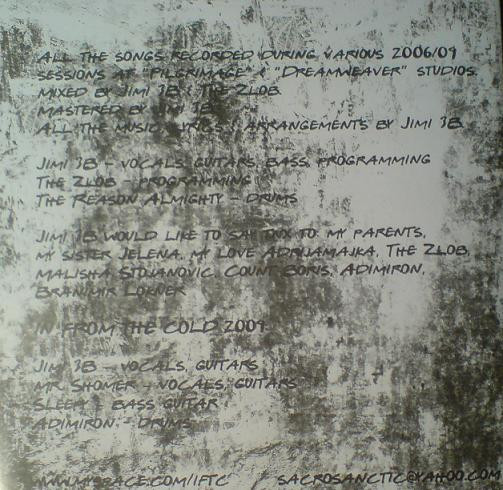 ALL THE SONGS RECORDED DURING VARIOUS 2006/09
SESSIONS AT "PILGRIMAGE" & "DREAMWEAVER" STUDIOS.
MIXED BY JIMI 3B & THE ZLOB
MASTERED BY JIMI 3B
ALL THE MUSIC, LYRICS & ARRANGEMENTS BY JIMI 3B
JIMI 3B - VOCALS, GUITARS, BASS, PROGRAMMING
THE ZLOB - PROGRAMMING
THE REASON ALMIGHTY - DRUMS
JIMI 3B WOULD LIKE TO SAY TNX TO: MY PARENTS,
MY SISTER JELENA, MY LOVE ADRIJAMAJKA, THE ZLOB,
MALISHA STOJANOVIC, COUNT BORIS, ADIMIRON,
BRANIMIR LOKNER
IN FROM THE COLD 2009
JIMI 3B - VOCALS, GUITARS
MR. SHOMER - VOCALS, GUITARS
SLEEPY - BASS GUITAR
ADIMIRON - DRUMS
WWW.MYSPACE.COM/IFTC SACROSANCTIC@YAHOO.COM